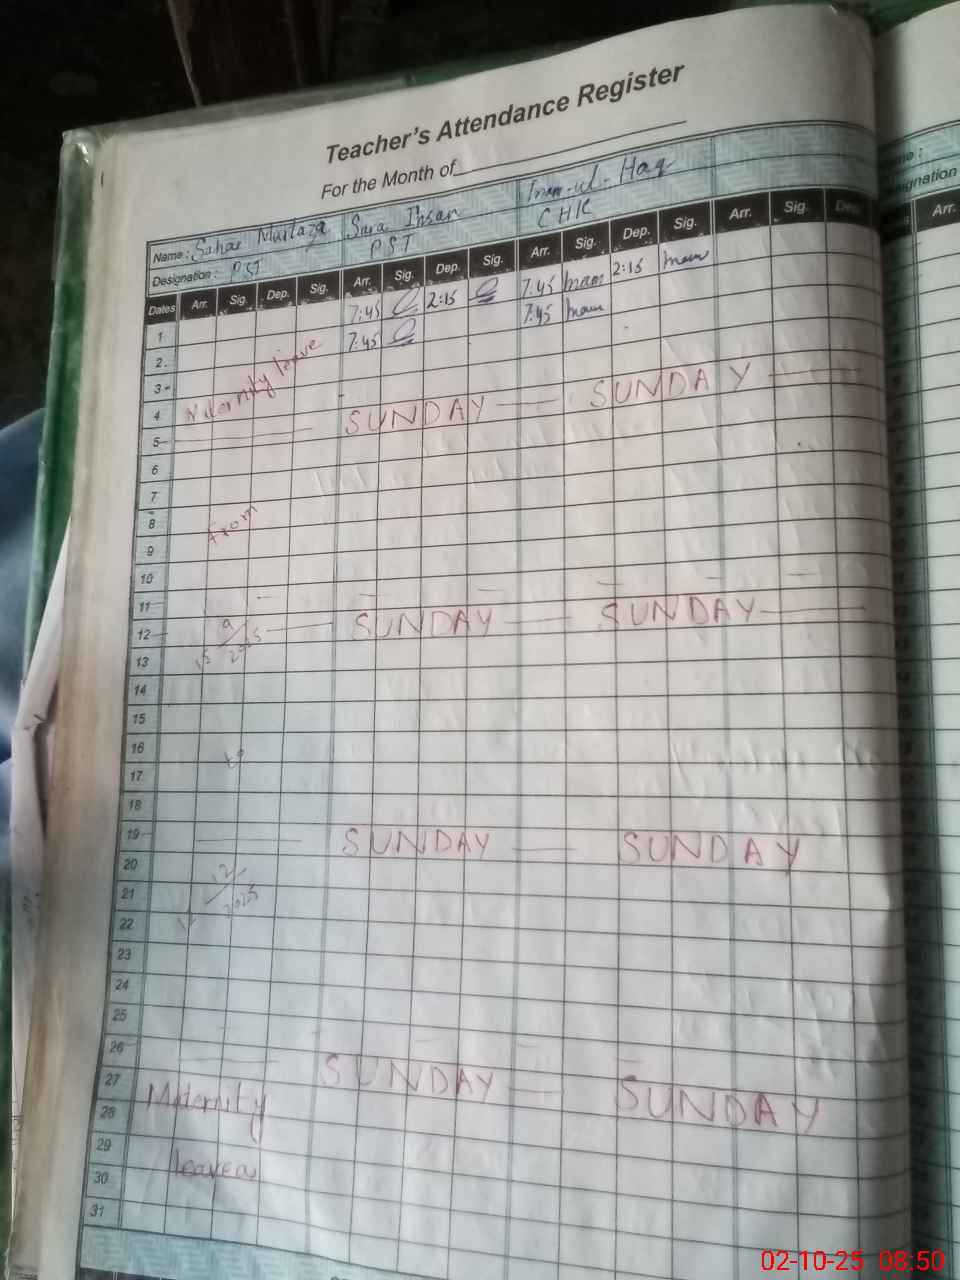 Teacher's Attendance Register
For the Month of
Name : Sahar Murtaza Sara Ihsan Inam-ul-Haq
Designation : PST PST CHK
Dates Arr. Sig. Dep. Sig. Arr. Sig. Dep. Sig. Arr. Sig. Dep. Sig. Arr. Sig. Dep.
Arr.
1 7:45 2:15 7:45 Inam 2:15 Inam
2. 7:45 7:45 Inam
3
4 Maternity leave
5 SUNDAY SUNDAY
6
7
8 From
9
10
11
12 SUNDAY SUNDAY
9
2025
13
14
15
16
17 to
18
19 SUNDAY SUNDAY
20
21 12
2025
22
23
24
25
26 SUNDAY SUNDAY
27
28 Maternity
29
30 leave
31
02-10-25 08:50